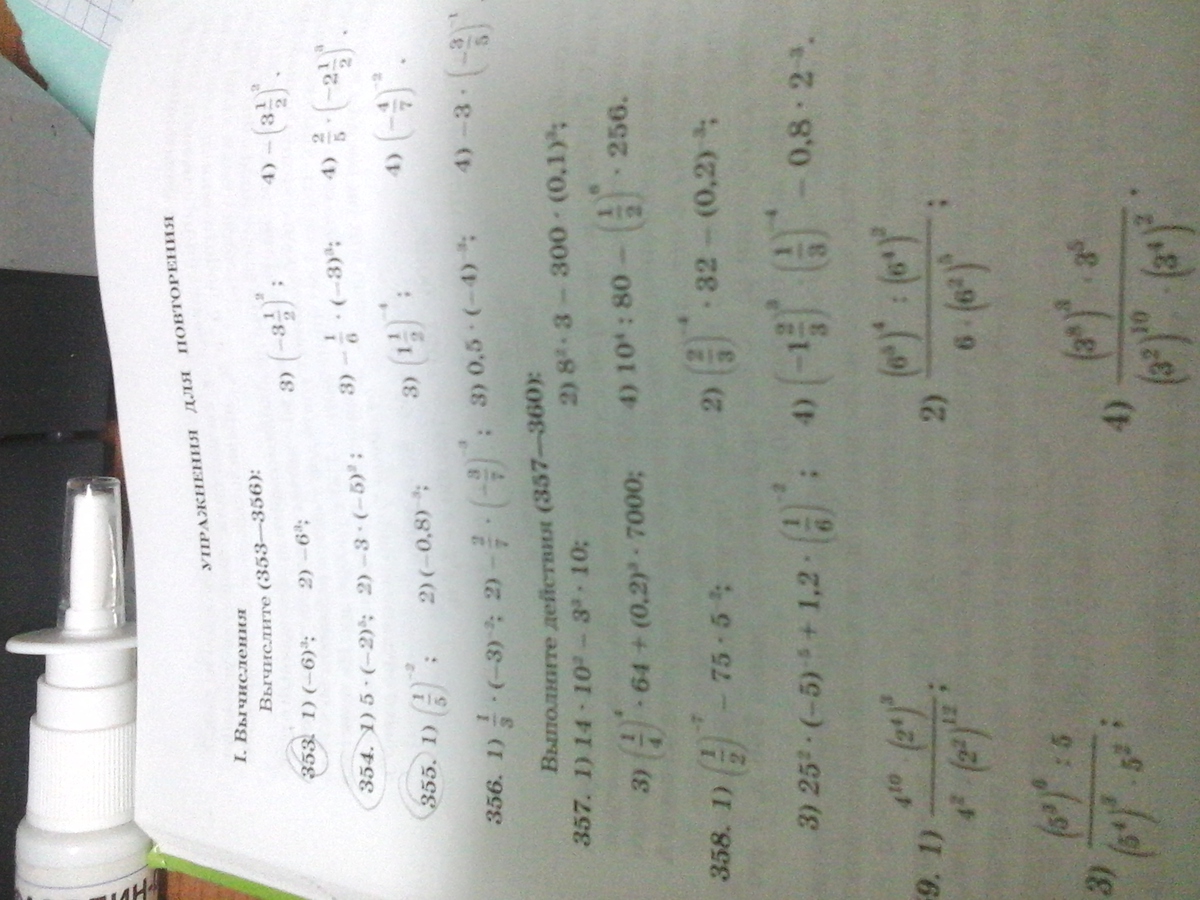 УПРАЖНЕНИЯ ДЛЯ ПОВТОРЕНИЯ
I. Вычисления
Вычислите (353—356):
353. 1) (−6)³; 2) −6³; 3) (−3 1/2)²; 4) −(3 1/2)².
354. 1) 5 · (−2)⁵; 2) −3 · (−5)²; 3) −1/6 · (−3)³; 4) 2/5 · (−2 1/2)³.
355. 1) (1/5)⁻²; 2) (−0,8)⁻³; 3) (1 1/2)⁻⁴; 4) (−4/7)⁻².
356. 1) 1/3 · (−3)⁻²; 2) −2/7 · (−3/7)⁻³; 3) 0,5 · (−4)⁻³; 4) −3 · (−3/5)⁻¹
Выполните действия (357—360):
357. 1) 14 · 10² − 3³ · 10; 2) 8² · 3 − 300 · (0,1)³;
3) (1/4)⁴ · 64 + (0,2)³ · 7000; 4) 10⁴ : 80 − (1/2)⁶ · 256.
358. 1) (1/2)⁻⁷ − 75 · 5⁻²; 2) (2/3)⁻⁴ · 32 − (0,2)⁻³;
3) 25² · (−5)⁻⁵ + 1,2 · (1/6)⁻²; 4) (−1 2/3)³ · (1/3)⁻⁴ − 0,8 · 2⁻³.
9. 1) 4¹⁰ · (2⁴)³ / 4² · (2²)¹²; 2) (6³)⁴ : (6⁴)² / 6 · (6²)⁵;
3) (5³)⁶ : 5 / (5⁴)³ · 5²; 4) (3⁸)³ · 3⁵ / (3²)¹⁰ · (3⁴)².